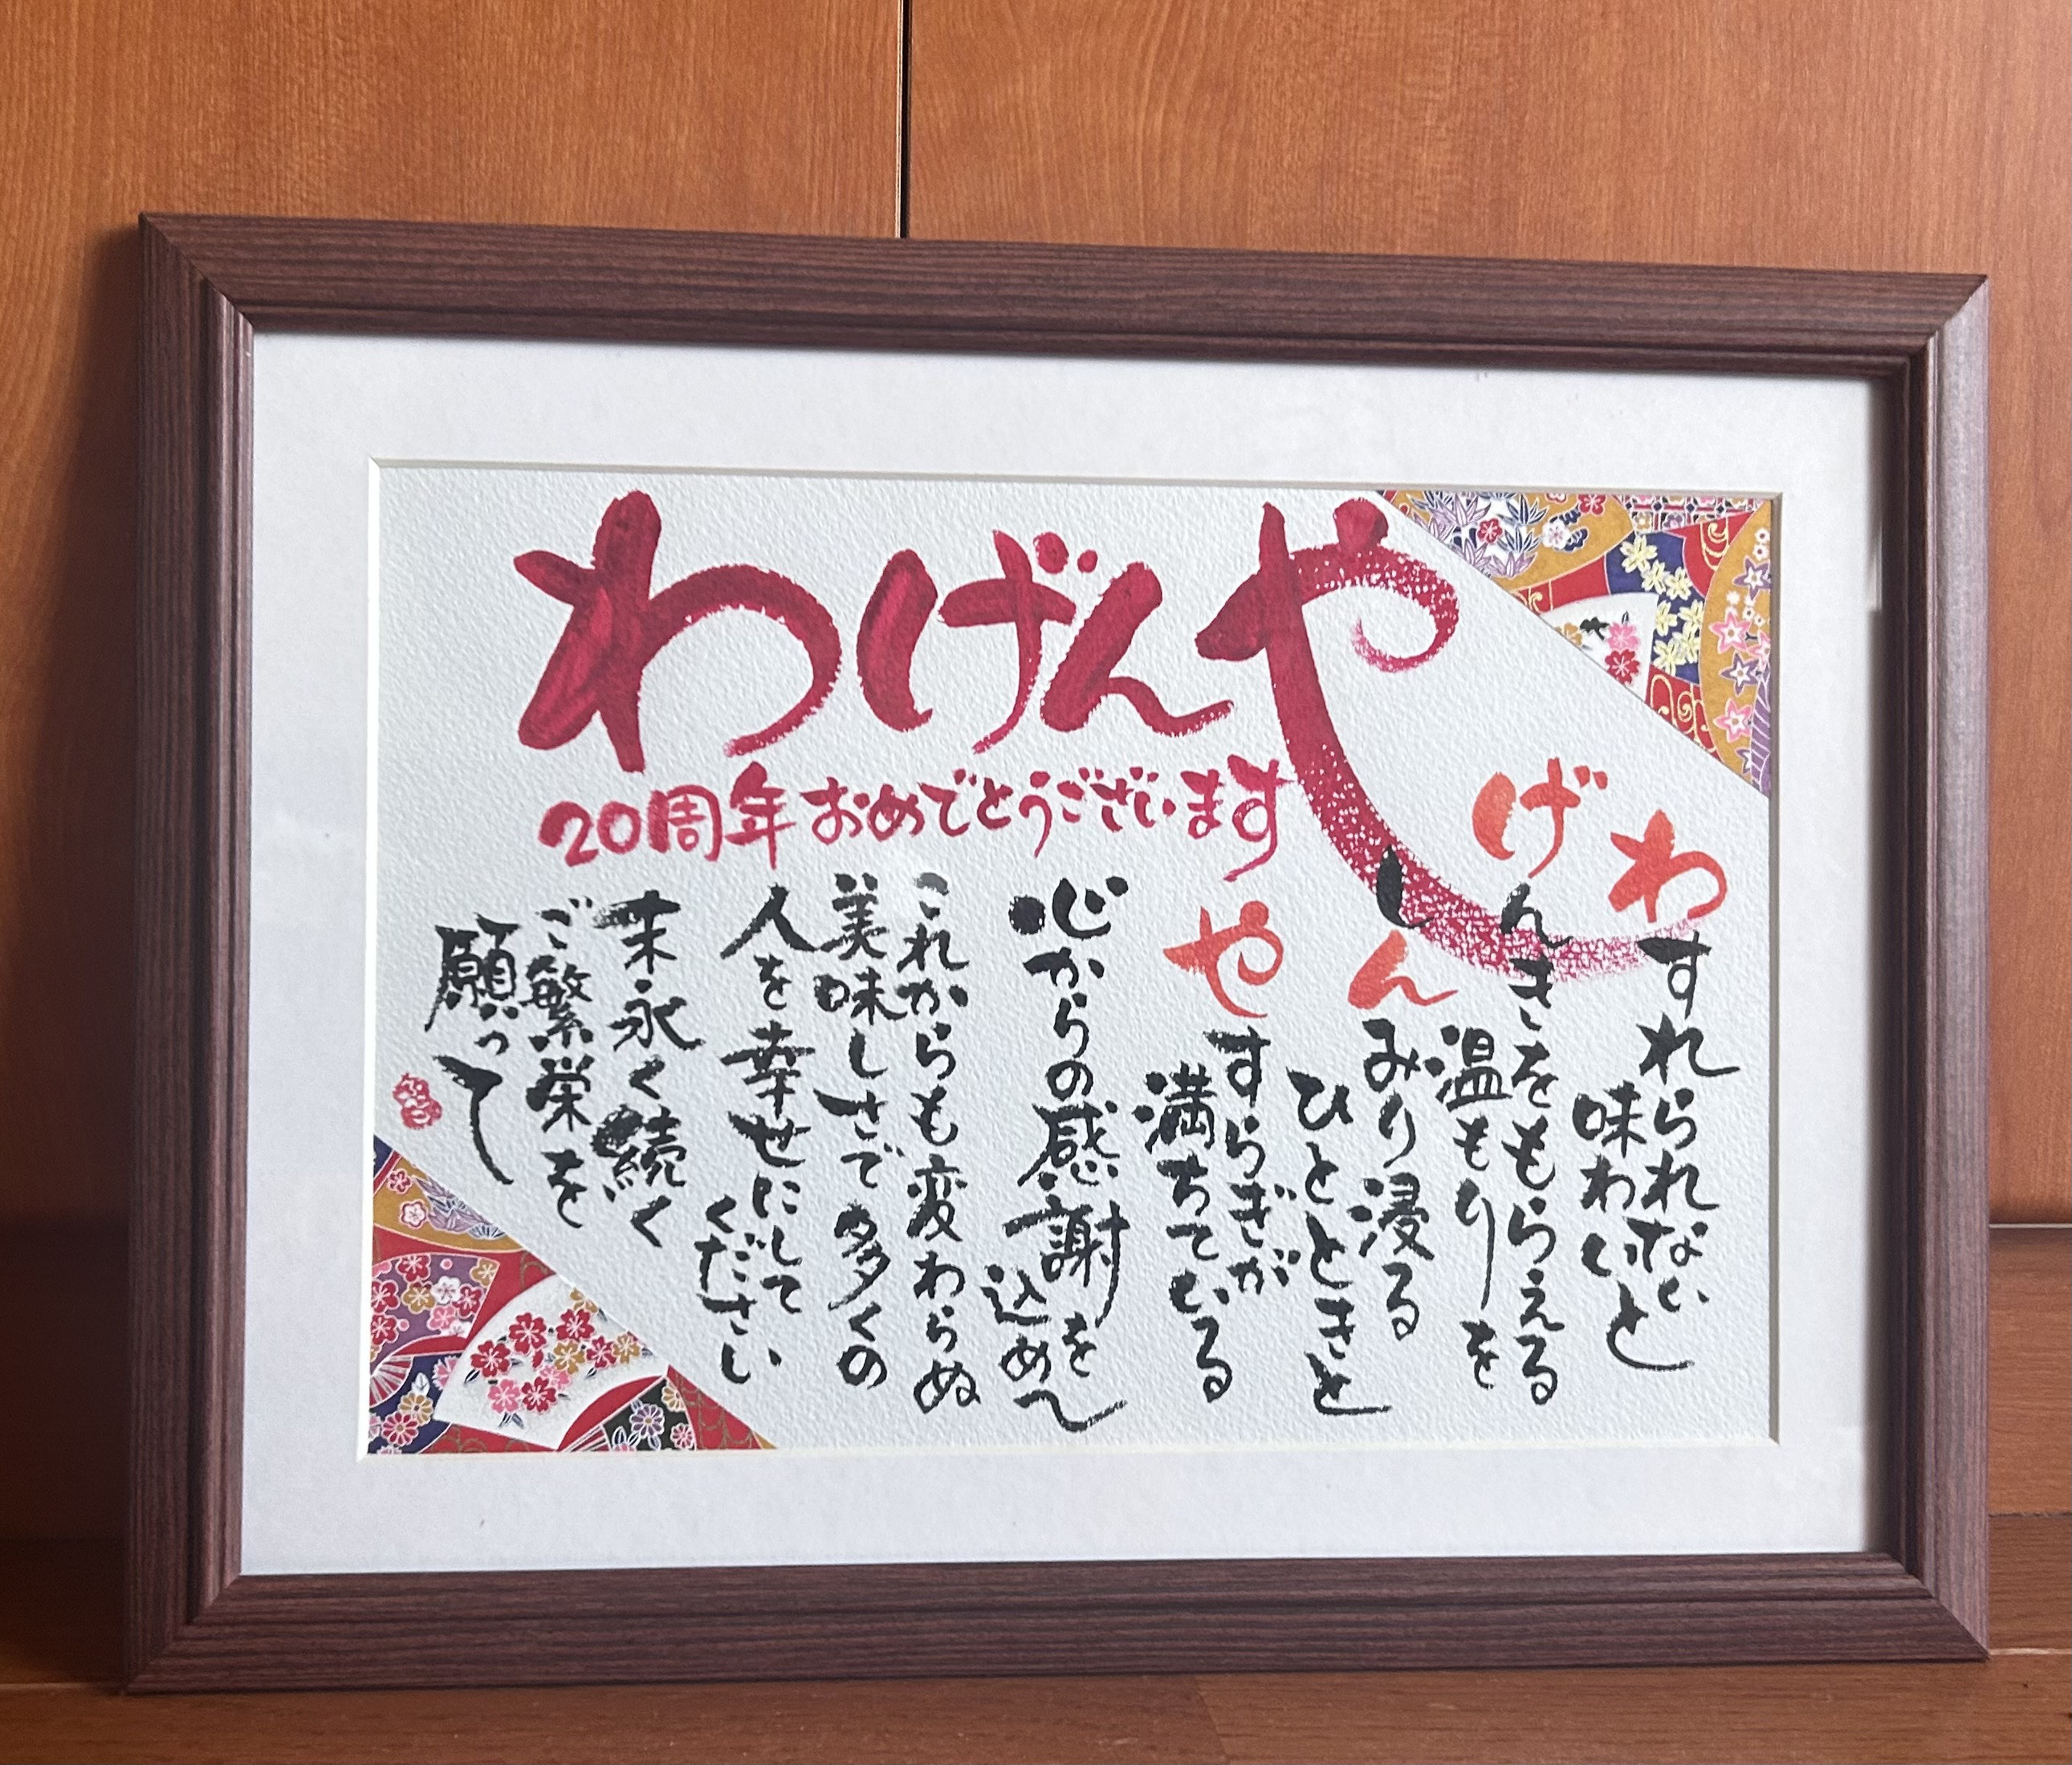 わげんや
20周年おめでとうございます
わすれられない
味わいと
げんきをもらえる
温もりを
しんみり浸る
ひとときと
やすらぎが
満ちている
心からの感謝を
込めて
これからも変わらぬ
美味しさで多くの
人を幸せにして
ください
末永く続く
ご繁栄を
願って